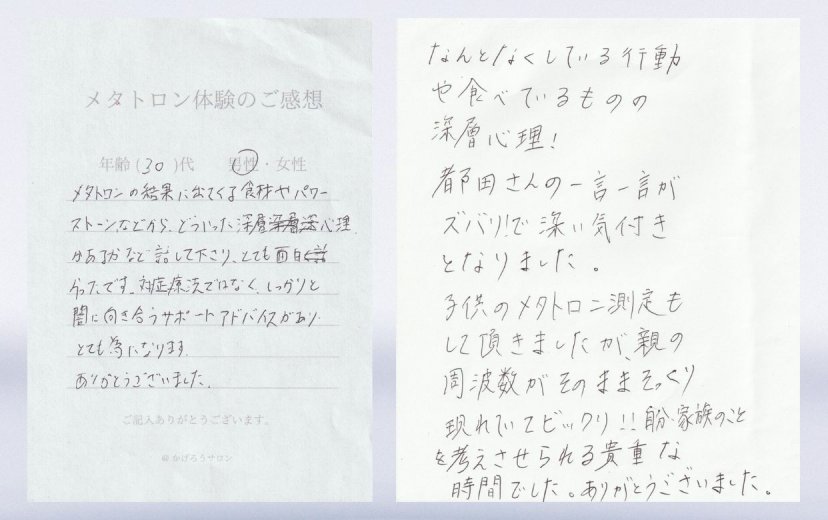 メタトロン体験のご感想
年齢(30)代 男性・女性
メタトロンの結果に出てくる食材やパワー
ストーンなどから、どういった深層心理
があるかなど話して下さり、とても面白
かったです。対症療法ではなく、しっかりと
闇に向き合うサポートアドバイスがあり
とても為になります。
ありがとうございました。
ご記入ありがとうございます。
@かげろうサロン
なんとなくしている行動
や食べているものの
深層心理!
都田さんの一言一言が
ズバリ!で深い気付き
となりました。
子供のメタトロン測定も
して頂きましたが、親の
周波数がそのままそっくり
現れていてビックリ!!自分、家族のこと
を考えさせられる貴重な
時間でした。ありがとうございました。